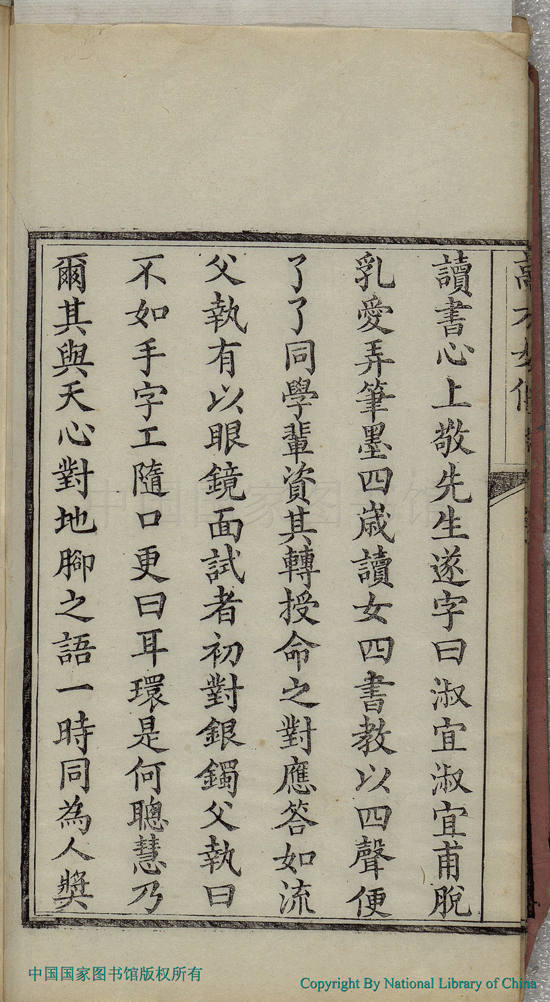 讀書心上敬先生遂字曰淑宜淑宜甫脫
乳愛弄筆墨四歲讀女四書教以四聲便
了了同學輩資其轉授命之對應答如流
父執有以眼鏡面試者初對銀鐲父執曰
不如手字工隨口更曰耳環是何聰慧乃
爾其與天心對地腳之語一時同為人獎
中国国家图书馆
中国国家图书馆版权所有
Copyright By National Library of China